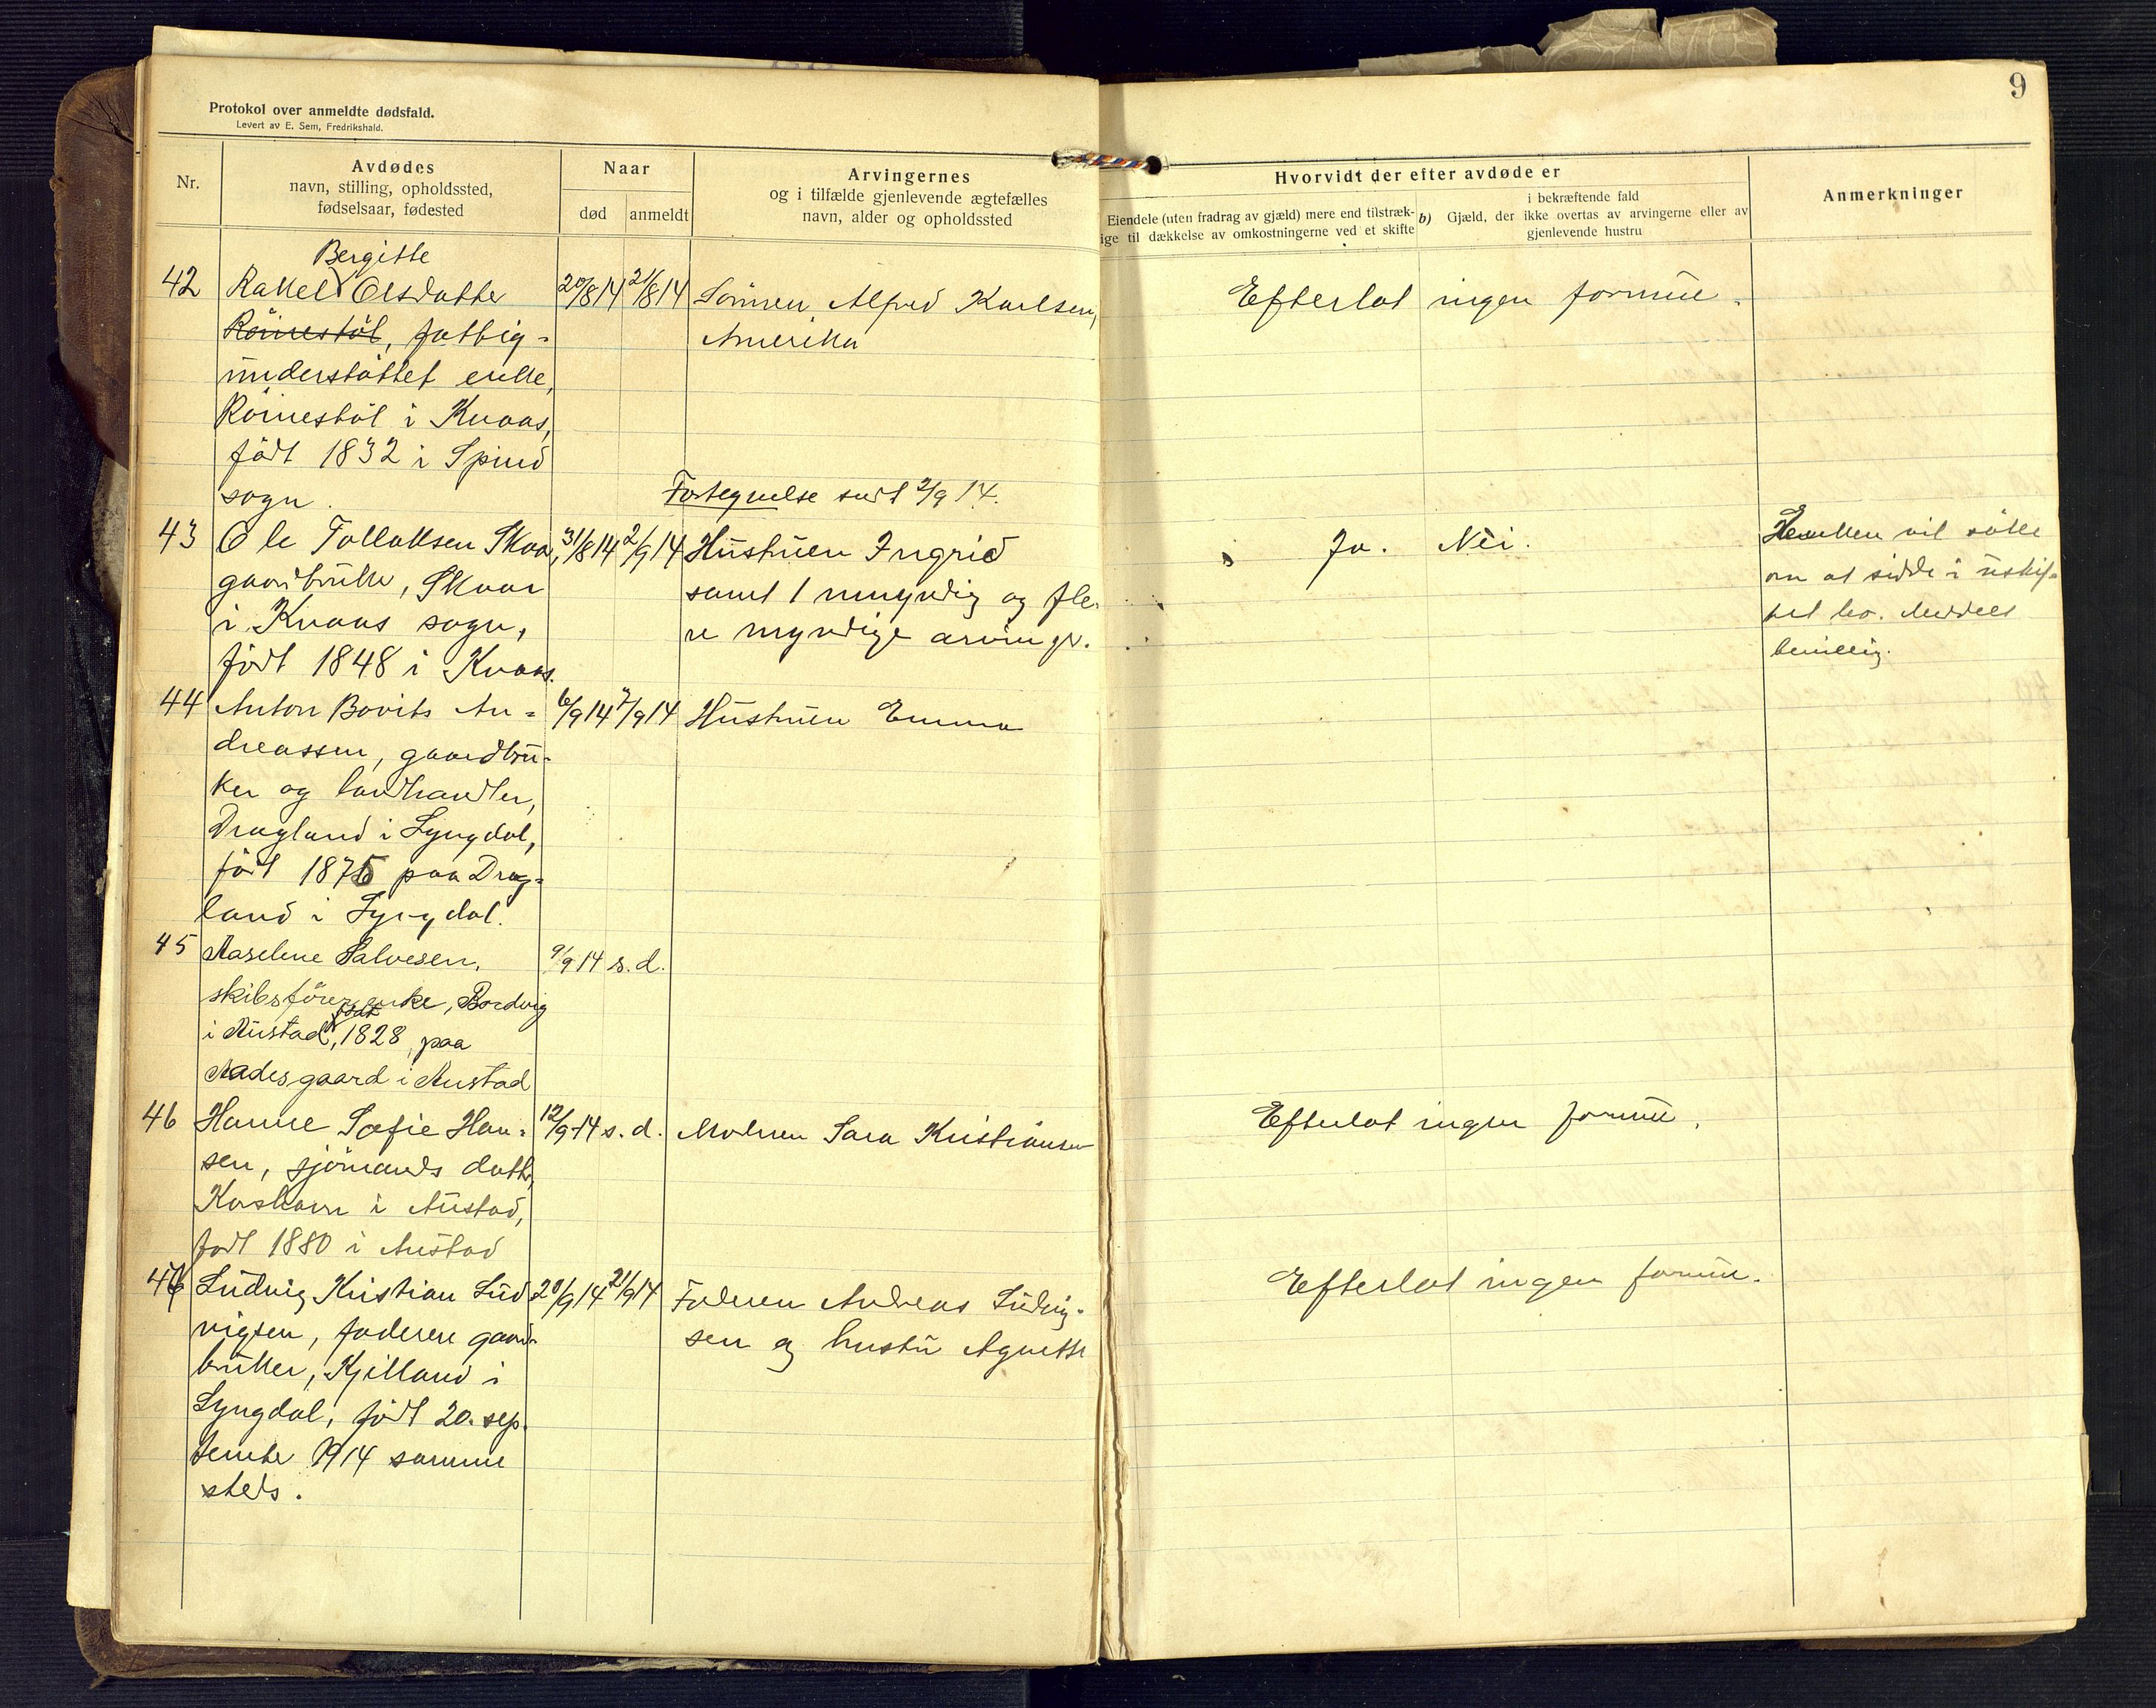 9
Protokol over anmeldte dødsfald.
Levert av E. Sem, Fredrikshald.
Nr.
Avdødes
navn, stilling, opholdssted,
fødselsaar, fødested
Naar
død
anmeldt
Arvingernes
og i tilfælde gjenlevende ægtefælles
navn, alder og opholdssted
Hvorvidt der efter avdøde er
Eiendele (uten fradrag av gjæld) mere end tilstræk-
ige til dækkelse av omkostningerne ved et skifte
b) Gjæld, der
i bekræftende fald
ikke overtas av arvingerne eller av
gjenlevende hustru
Anmerkninger
Bergitte
42 Rakel Olsdatter 20/8 14 21/8 14 Sönnen Alfred Karlsen, Efterlot ingen formue.
Rönnestöl, fattig- Amerika
understöttet enke,
Rönnestöl i Kvaas,
födt 1832 i Spind
sogn.
Fortegnelse sendt 2/9 14.
43 Ole Tollaksen Skaar, 31/8 14 2/9 14 Hustruen Ingrid Ja. Nei. Henken vil söke
gaardbruker, Skaar samt 1 umyndig og fle- om at sidde i uskif-
i Kvaas sogn, re myndige arvinger. tet bo. Meddelt
födt 1848 i Kvaas. bevilling.
44 Anton Bovits An- 6/9 14 7/9 14 Hustruen Emma
dreassen, gaardbru-
ker og landhandler,
Dragland i Lyngdal,
födt 1875 paa Drag-
land i Lyngdal.
45 Aaselene Salvesen, 9/9 14 s.d.
skibsförerenke, Bordvig
i Austad, födt 1828, paa
Aadesgaard i Austad
46 Hanne Sofie Han- 12/9 14 s.d. Moderen Sara Kristiansen Efterlot ingen formue.
sen, sjömands datter,
Korshavn i Austad,
födt 1880 i Austad
47 Ludvig Kristian Lud- 20/9 14 21/9 14 Faderen Andreas Ludvig- Efterlot ingen formue.
vigsen, faderen gaard- sen og hustru Agnethe
bruker, Kjilland i
Lyngdal, födt 20. sep-
tember 1914 samme
steds.